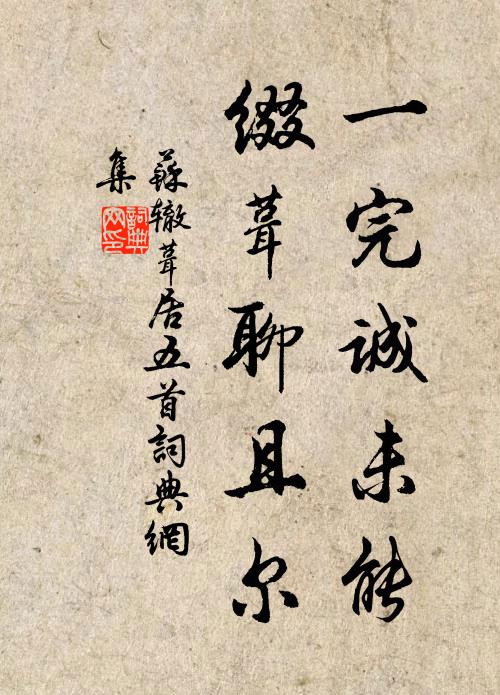 一完誠未能
缀葺聊且尔
蘇辙葺居五首詞典網
集
詞典網印